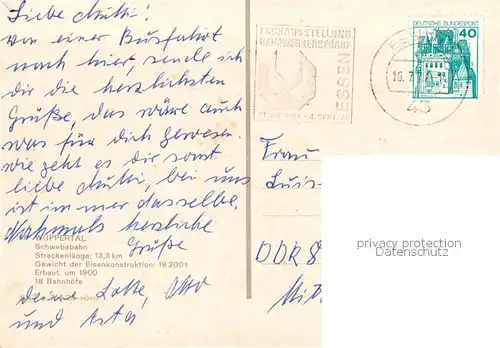 Liebe Mutti!
von einer Busfahrt
nach hier, sende ich
dir die herzlichsten
Grüße, das wäre auch
was für dich gewesen.
wie geht es dir sonst
liebe Mutti, bei uns
ist immer dasselbe.
Nochmals herzliche
Grüße
deine Lotte, Otto
und Asta
WUPPERTAL
Schwebebahn
Streckenlänge: 13,3 km
Gewicht der Eisenkonstruktion: 19.200 t
Erbaut: um 1900
18 Bahnhöfe
ESSEN
DEUTSCHE BUNDESPOST
40
16.7.
43
Frau
Luis
DDR 8
privacy protection
Datenschutz